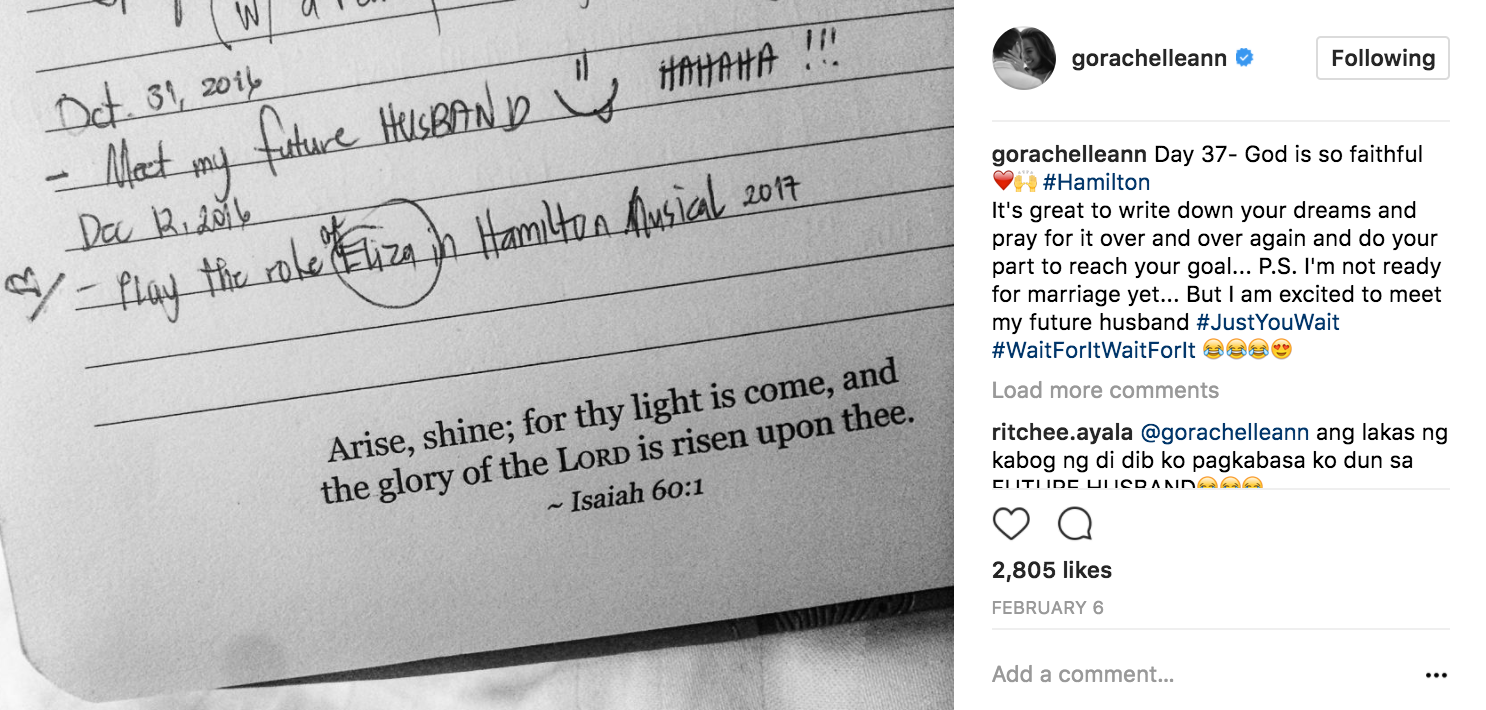 (W/ a
Oct. 31, 2016
- Meet my future HUSBAND HAHAHA !!!
Dec 12, 2016
- Play the role of Eliza in Hamilton Musical 2017
Arise, shine; for thy light is come, and
the glory of the LORD is risen upon thee.
~ Isaiah 60:1
gorachelleann
Following
gorachelleann Day 37- God is so faithful
❤️🙌 #Hamilton
It's great to write down your dreams and
pray for it over and over again and do your
part to reach your goal... P.S. I'm not ready
for marriage yet... But I am excited to meet
my future husband #JustYouWait
#WaitForItWaitForIt 😂😂😂😍
Load more comments
ritchee.ayala @gorachelleann ang lakas ng
kabog ng di dib ko pagkabasa ko dun sa
FUTURE HUSBAND😂😂😂
2,805 likes
FEBRUARY 6
Add a comment...